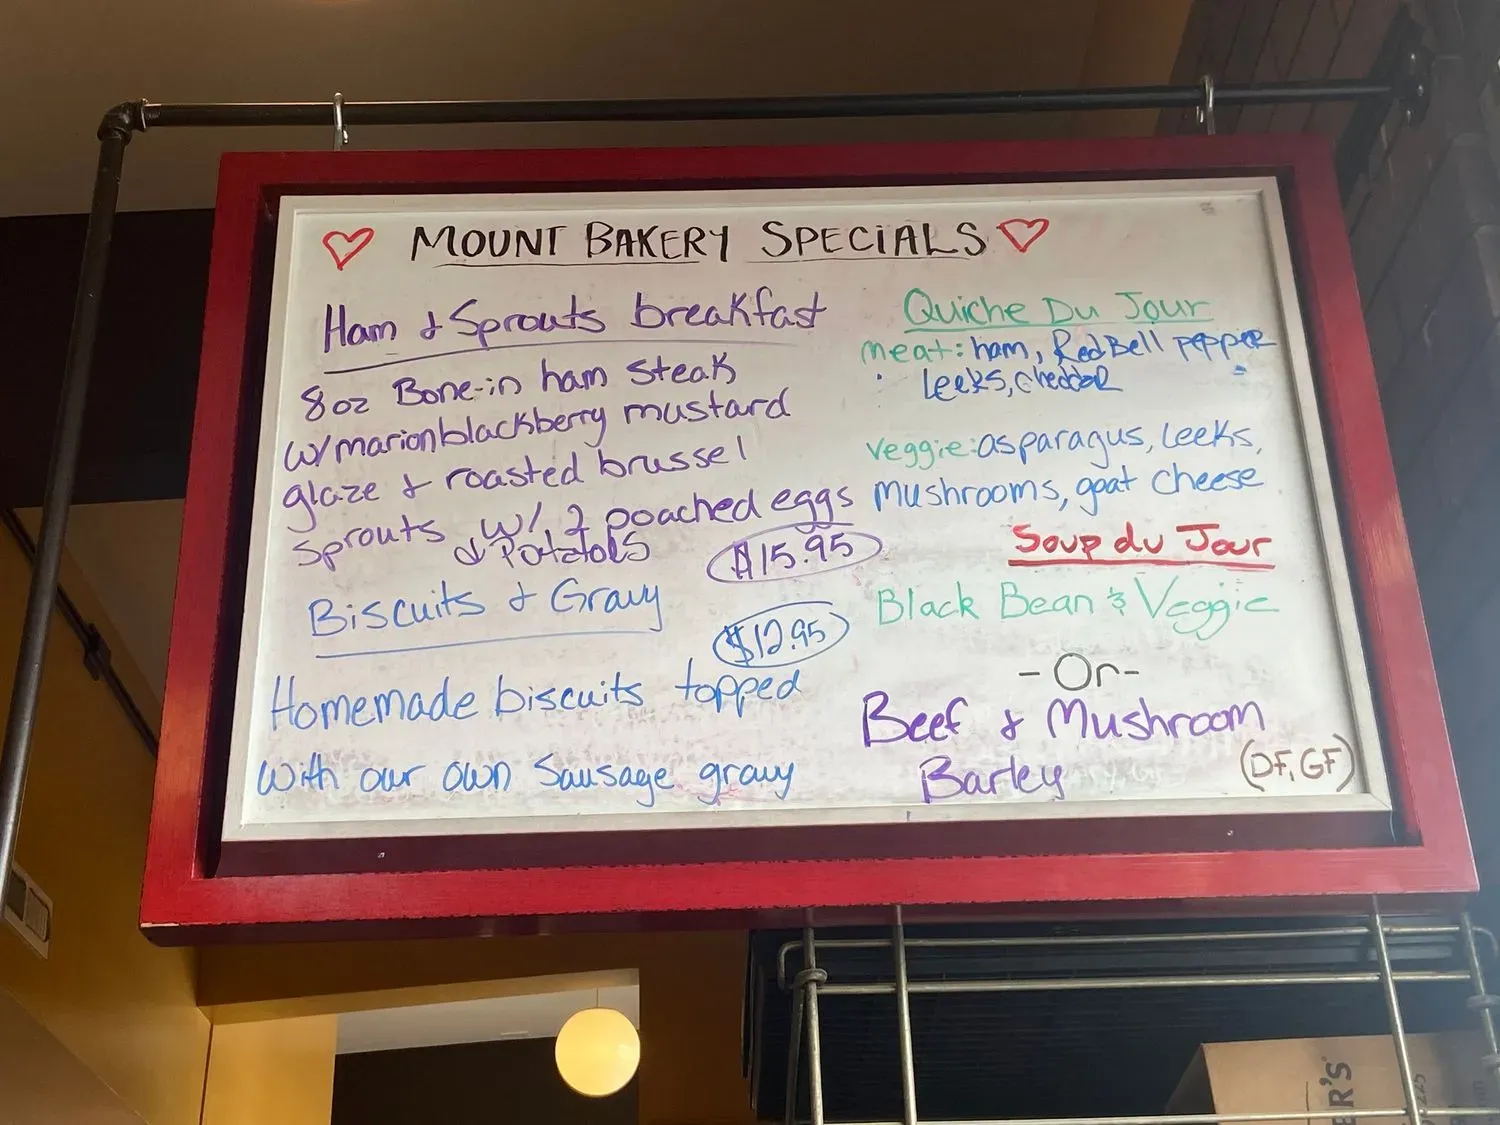 MOUNT BAKERY SPECIALS
Ham & Sprouts breakfast
8oz Bone-in ham steak
w/marionblackberry mustard
glaze & roasted brussel
sprouts w/ 2 poached eggs
& Potatoes
$15.95
Biscuits & Gravy
$12.95
Homemade biscuits topped
with our own Sausage gravy
Quiche Du Jour
meat: ham, Red Bell pepper
Leeks, cheddar
veggie: asparagus, Leeks,
mushrooms, goat cheese
Soup du Jour
Black Bean & Veggie
- Or -
Beef & Mushroom
Barley
(DF, GF)
ER'S